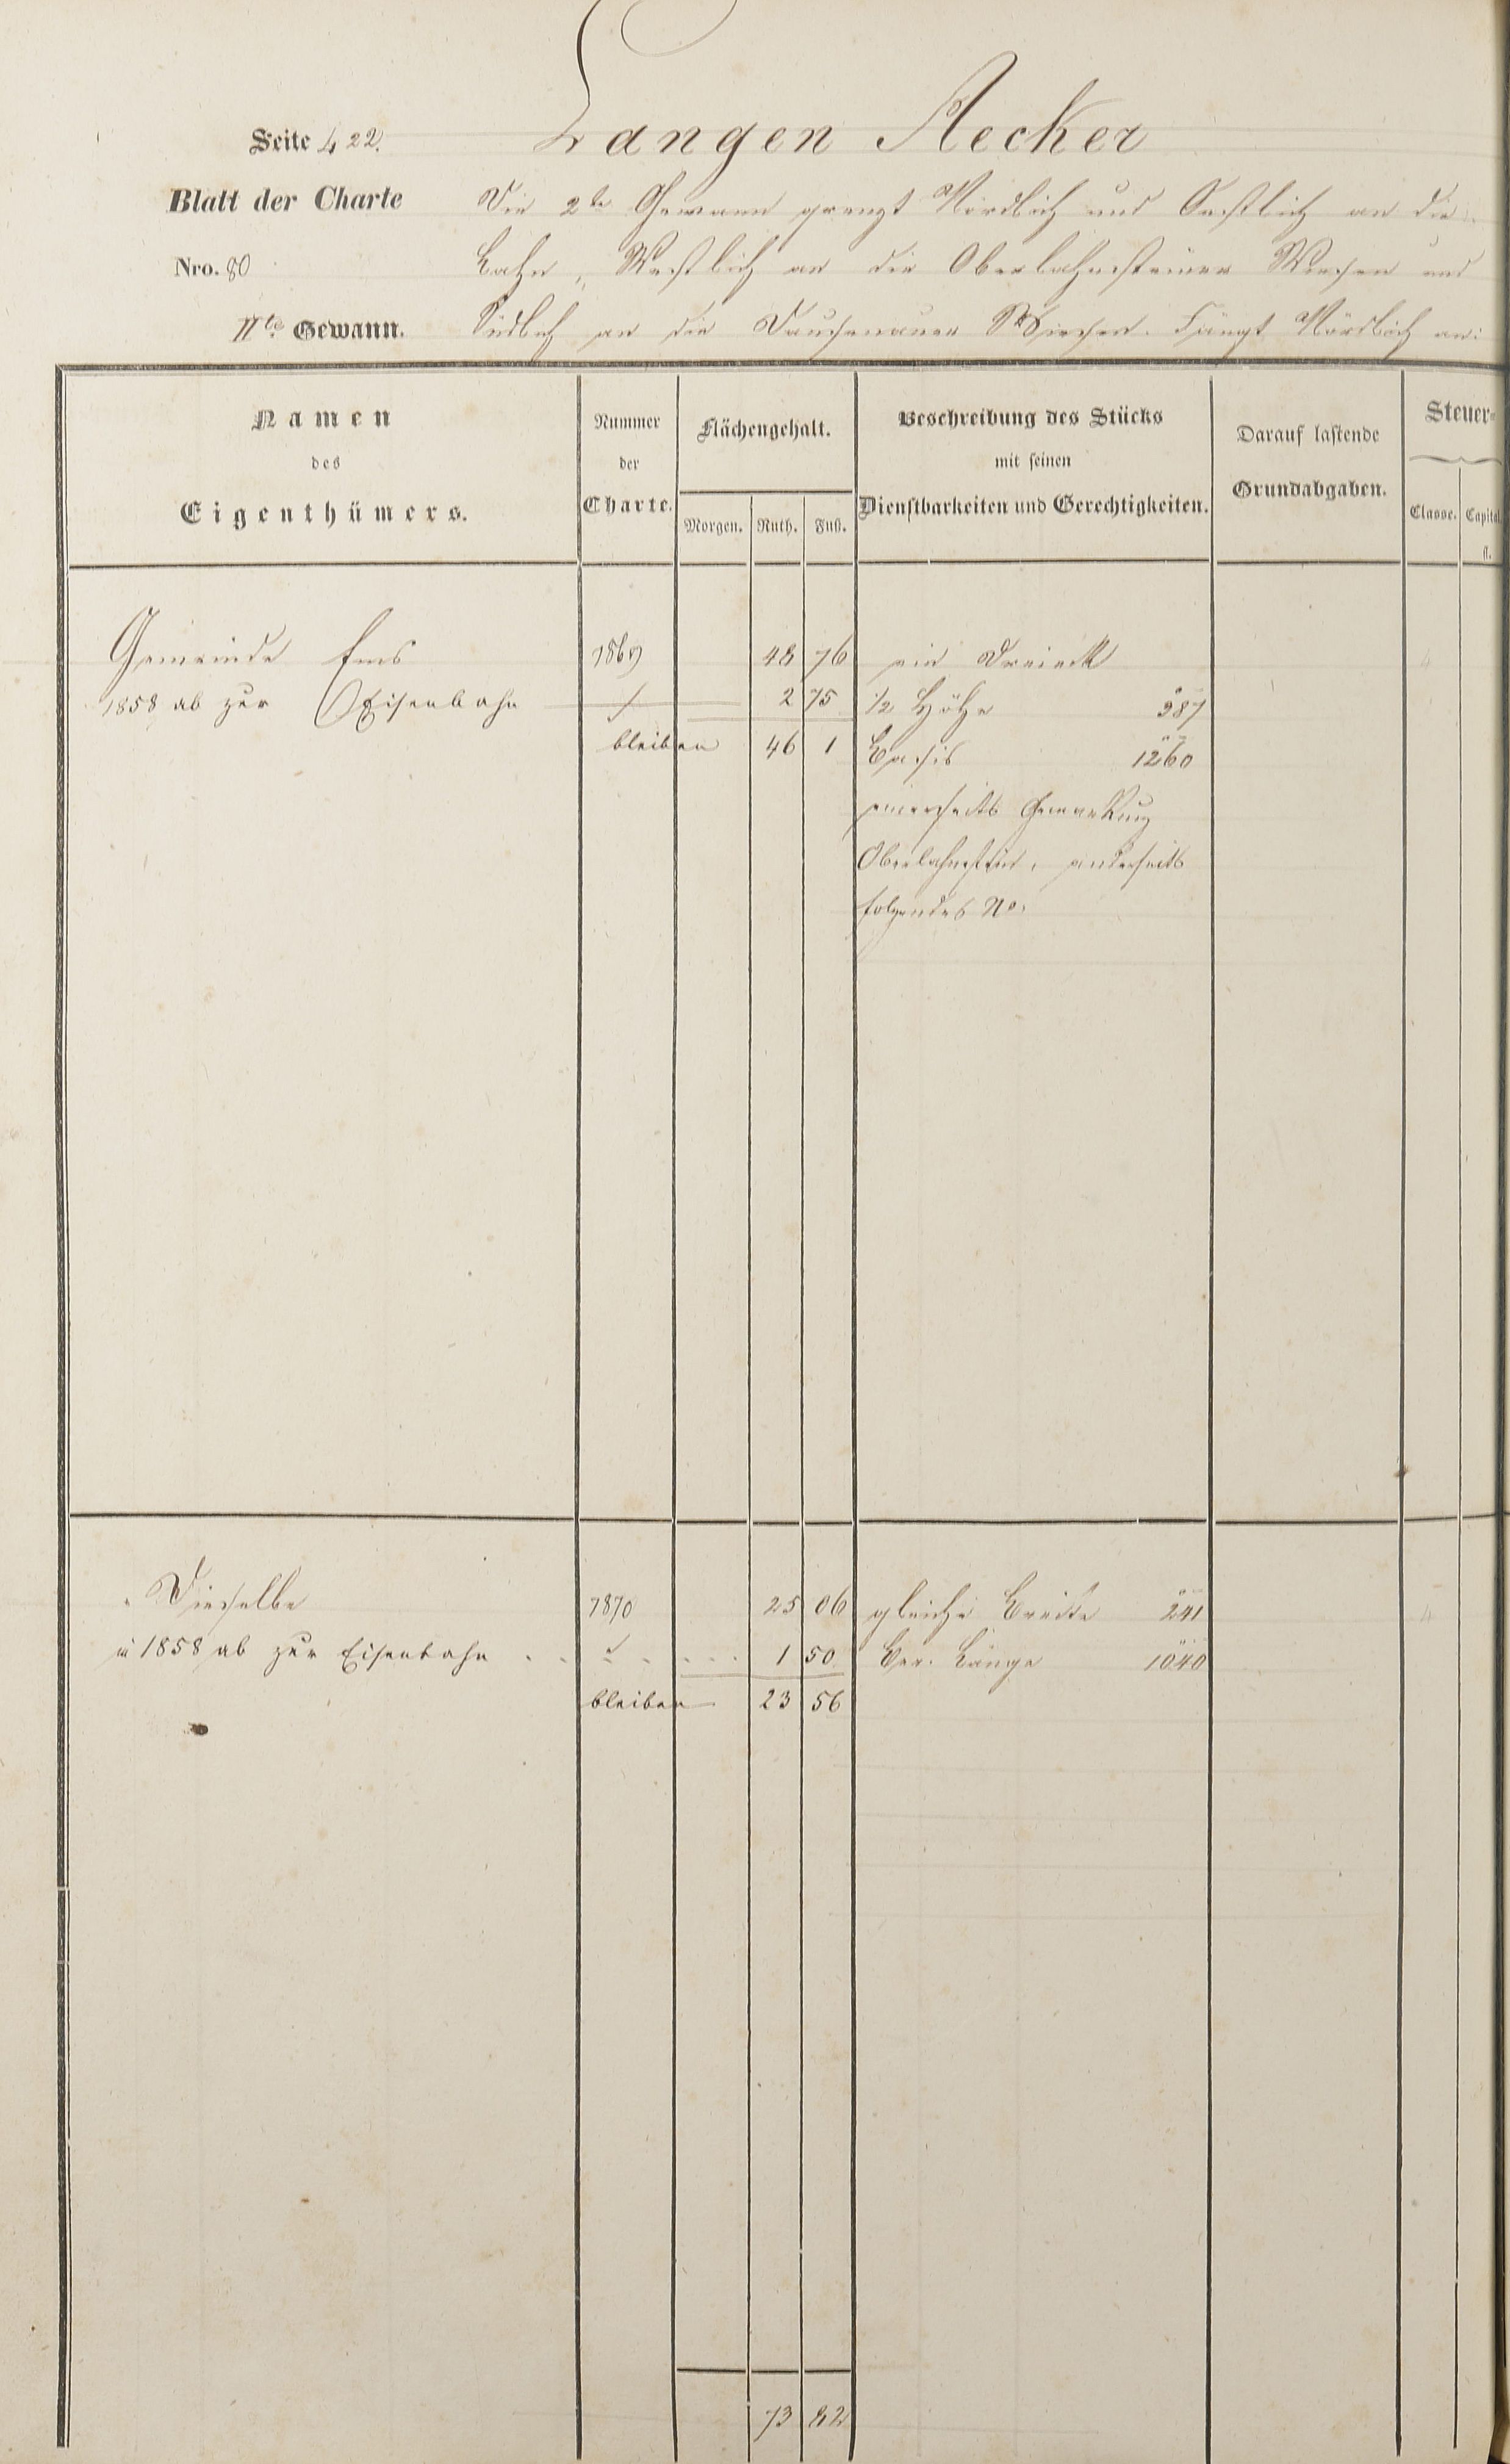 Langen Aecker
Seite 422.
Blatt der Charte Die 2te Gewann grenzt Nördlich und Oestlich an die
Nro. 80 Lahn, Westlich an die Oberlahnsteiner Wiesen und
IIte Gewann. Südlich an die Dausenauer Wiesen. Fängt Nördlich an:
Namen des Eigenthümers.
Nummer der Charte.
Flächengehalt.
Morgen. Ruth. Fuß.
Beschreibung des Stücks
mit seinen
Dienstbarkeiten und Gerechtigkeiten.
Darauf lastende
Grundabgaben.
Steuer-
Classe. Capital.
fl.
Gemeinde Ems 7869 48 76 ein Dreieck
1858 ab zur Eisenbahn 2 75 1/2 Höhe 387
bleiben 46 1 Basis 1260
einerseits Gemarkung
Oberlahnstein, anderseits
folgendes No.
Dieselbe 7870 25 06 gleiche Breite 241
1858 ab zur Eisenbahn 1 50 Ber. Länge 1040
bleiben 23 56
73 82